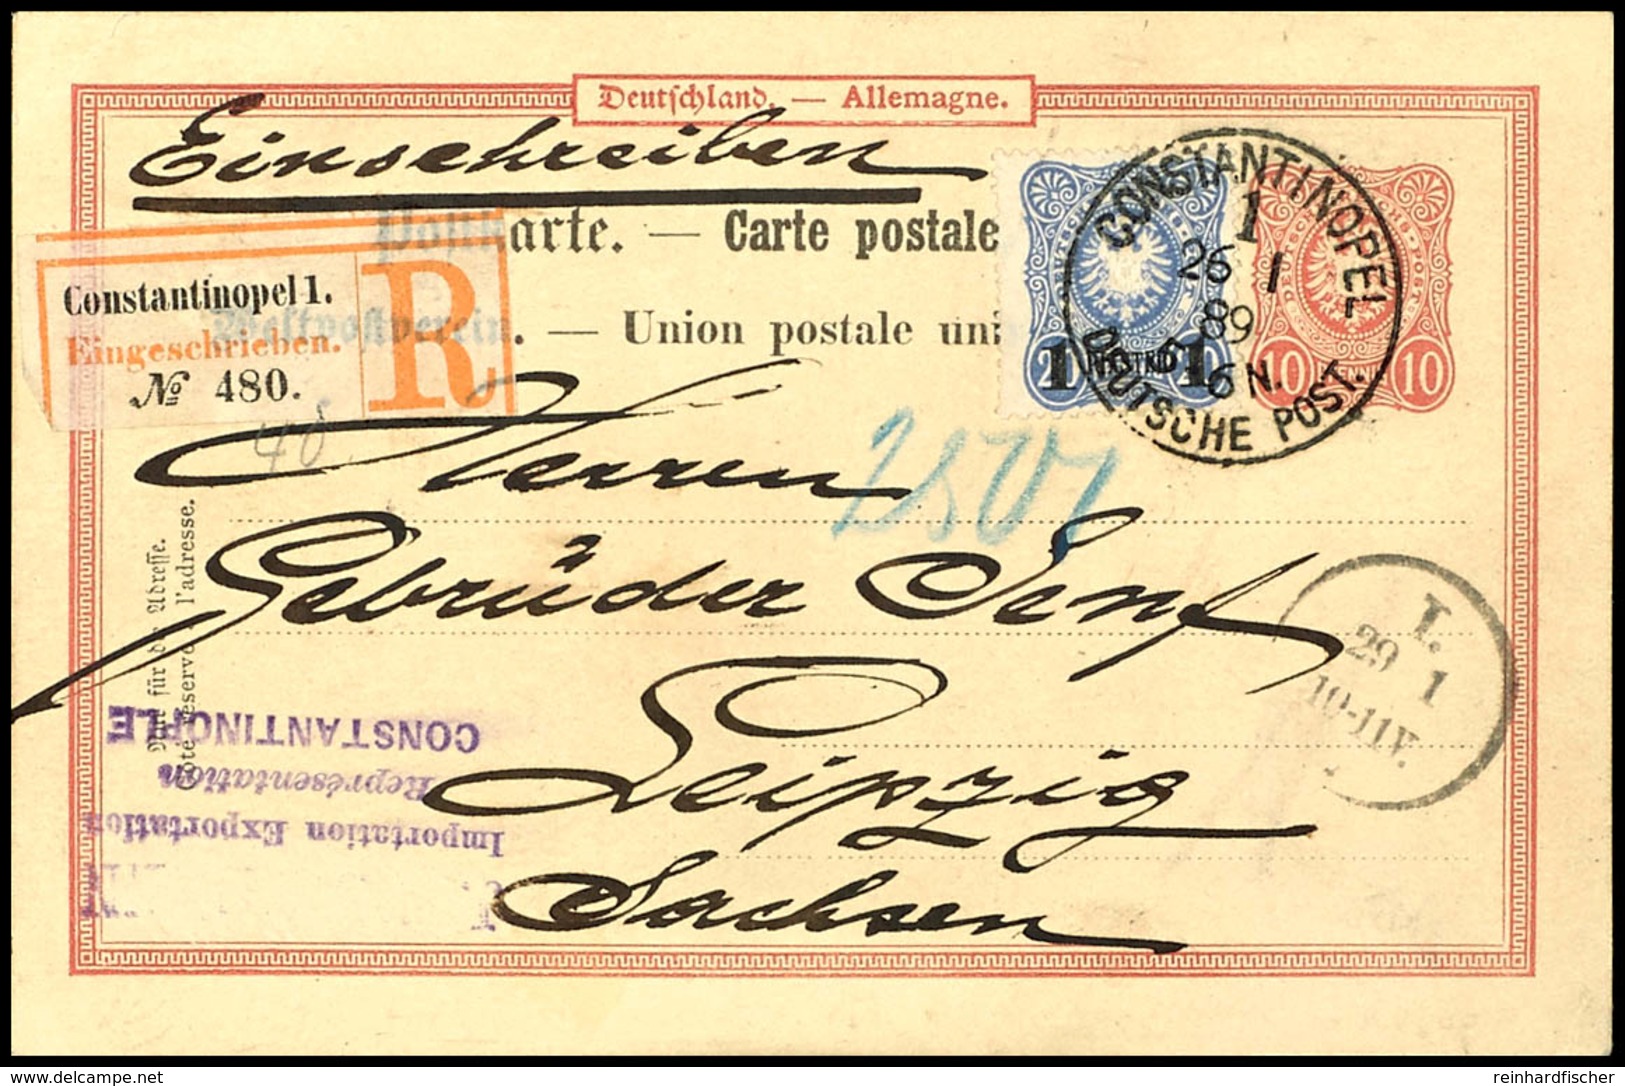 Deutschland. — Allemagne.
Einschreiben
Postkarte. — Carte postale
Weltpostverein. — Union postale uni
Constantinopel 1.
Eingeschrieben.
№ 480.
R
CONSTANTINOPEL
1
26 1
89
6 N.
DEUTSCHE POST.
1 1
20 20
10 PFENNIG 10
Herren
Gebrüder Senf
Leipzig
Sachsen
I.
29 1
10-11V.
Nur für die Adresse.
Côté réservé à l'adresse.
Importation Exportation
Représentation
CONSTANTINOPLE
delcampe.net
reinhardfischer